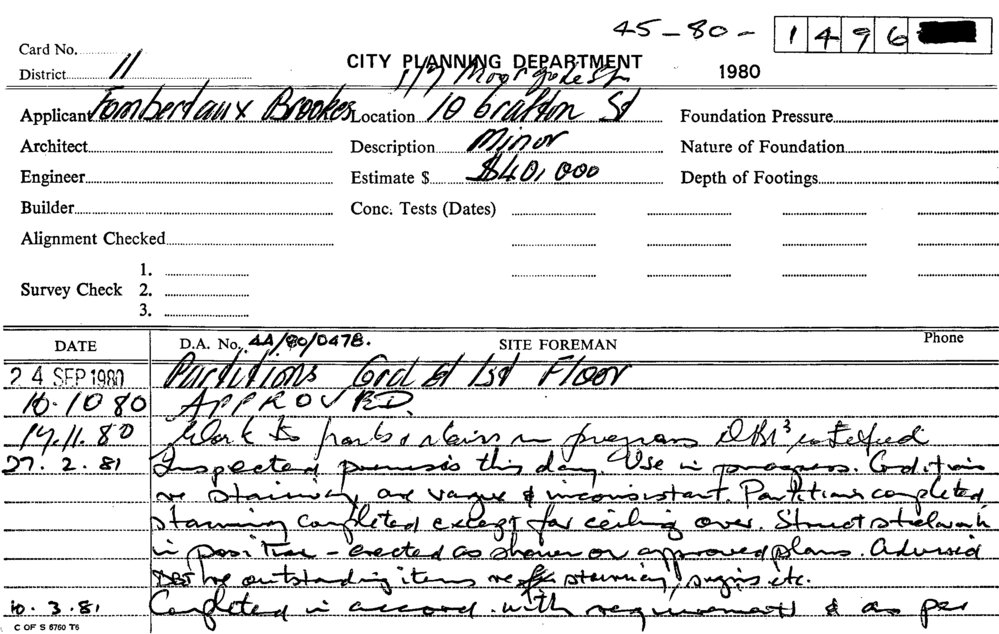 45-80- 1496
Card No.
CITY PLANNING DEPARTMENT
District 11
1980
Applicant Fombertaux Brookes Location 10 Grafton St Foundation Pressure
Architect Description Minor Nature of Foundation
Engineer Estimate $ $40,000 Depth of Footings
Builder Conc. Tests (Dates)
Alignment Checked
1.
Survey Check 2.
3.
DATE D.A. No. 44/80/0478. SITE FOREMAN Phone
24 SEP 1980 Partitions Grd & 1st Floor
10.10 80 APPROVED.
.11.80 Work to stairs in progress
27.2.81 Inspected premises this day. Use in progress. Conditions
re stairway are vague & inconsistant. Partitions completed
completed except for ceiling over. Struct steelwork
in position - erected as shown on approved plans. Advised
re outstanding items re stairway, signs etc.
10.3.81 Completed in accord. with requirements & as per
C OF S 5760 T6